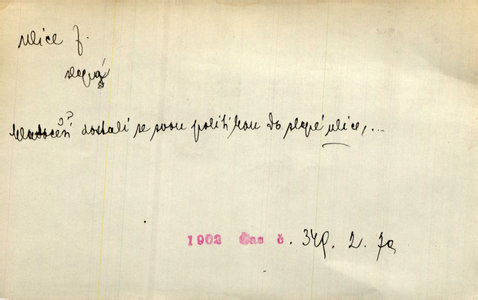 ulice f.
slepá
?
Mladočeši dostali se svou politikou do slepé ulice, ...
1902 Čas č. 349. 2. 7a